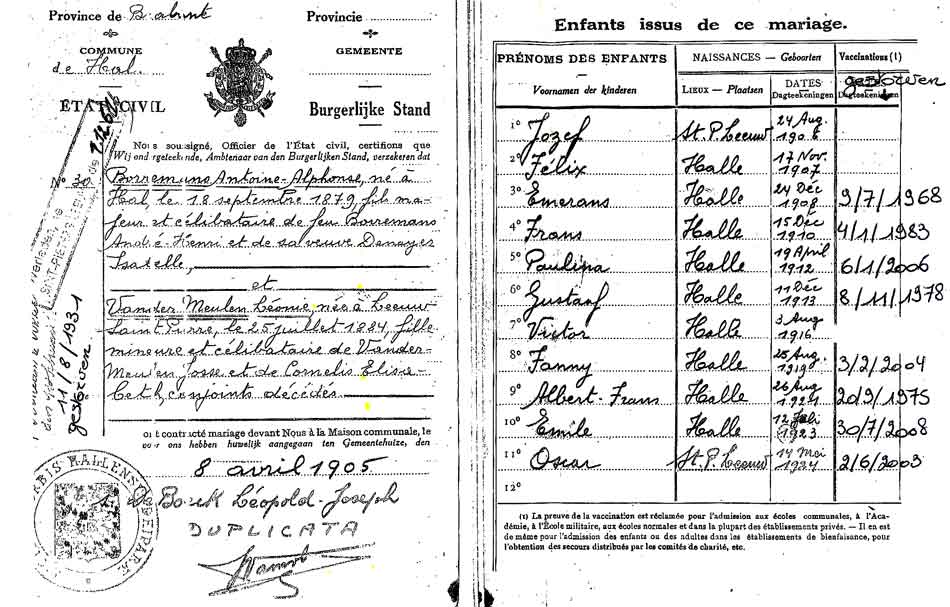 Province de Brabant
Provincie
COMMUNE
de Hal
GEMEENTE
ÉTAT CIVIL
Burgerlijke Stand
Nous soussigné, Officier de l'État civil, certifions que
Wij ondergeteekende, Ambtenaar van den Burgerlijken Stand, verzekeren dat
N° 30
Borremans Antoine-Alphonse, né à
Hal, le 18 septembre 1879, fils ma-
jeur et célibataire de feu Borremans
André-Henri et de sa veuve Denayer
Isabelle,
et
Vander Meulen Léonie, née à Leeuw
Saint Pierre, le 25 juillet 1884, fille
mineure et célibataire de Vander-
Meulen Josse et de Cornelis Elisa-
beth, conjoints décédés
ont contracté mariage devant Nous à la Maison communale, le
voor ons hebben huwelijk aangegaan ten Gemeentehuize, den
8 avril 1905
De Borck Léopold-Joseph
DUPLICATA
11/8/1931
gestorven
Enfants issus de ce mariage.
PRÉNOMS DES ENFANTS
Voornamen der kinderen
NAISSANCES — Geboorten
LIEUX — Plaatsen
DATES
Dagteekeningen
Vaccinations (1)
gestorven
Dagteekeningen
1° Jozef St. P. Leeuw 24 Aug. 1906
2° Félix Halle 17 Nov. 1907
3° Emerans Halle 24 Dec 1908 9/7/1968
4° Frans Halle 15 Dec 1910 4/1/1983
5° Paulina Halle 19 April 1912 6/1/2006
6° Gustaaf Halle 11 Dec 1913 8/11/1978
7° Victor Halle 3 Aug 1916
8° Fanny Halle 25 Aug. 3/2/2004
9° Albert-Frans Halle 26 Aug 1921 20/9/1975
10° Emile Halle 12 Juli 1923 30/7/2008
11° Oscar St. P. Leeuw 14 Mei 2/6/2003
12°
(1) La preuve de la vaccination est réclamée pour l'admission aux écoles communales, à l'Aca-
démie, à l'École militaire, aux écoles normales et dans la plupart des établissements privés. — Il en est
de même pour l'admission des enfants ou des adultes dans les établissements de bienfaisance, pour
l'obtention des secours distribués par les comités de charité, etc.